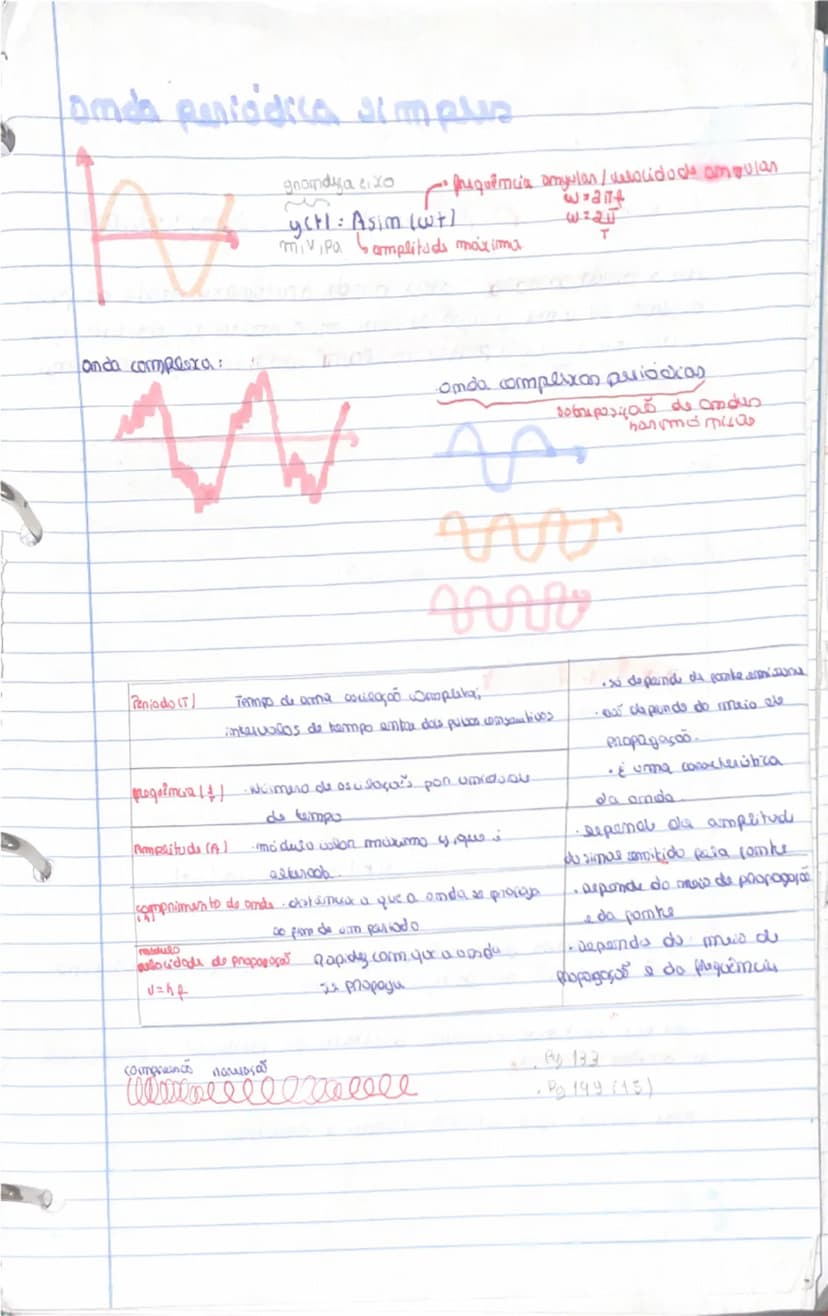 onda periódica simples
grandeza eixo
frequência angular / velocidade angular
ω = 2πf
y(t) = A sin (ωt)
ω = 2π
T
m, V, Pa
amplitude máxima
onda complexa:
onda complexas periódicas
sobreposição de ondas
harmónicas
Período (T) Tempo de uma oscilação completa;
intervalos de tempo entre dois pulsos consecutivos
· só depende da fonte emissora
· não depende do meio de
propagação.
· é uma característica
da onda
frequência (f) · Número de oscilações por unidade
de tempo
Amplitude (A) · módulo valor máximo y, que é
· depende da amplitude
do sinal emitido pela fonte
comprimento de onda · distância a que a onda se propaga
(λ) ao fim de um período
· depende do meio de propagação
e da fonte
módulo
velocidade de propagação Rapidez com que a onda
v = λ f se propaga
· Depende do meio de
propagação e da frequência
compressão rarefação
· Pg 133
· Pg 144 (15)